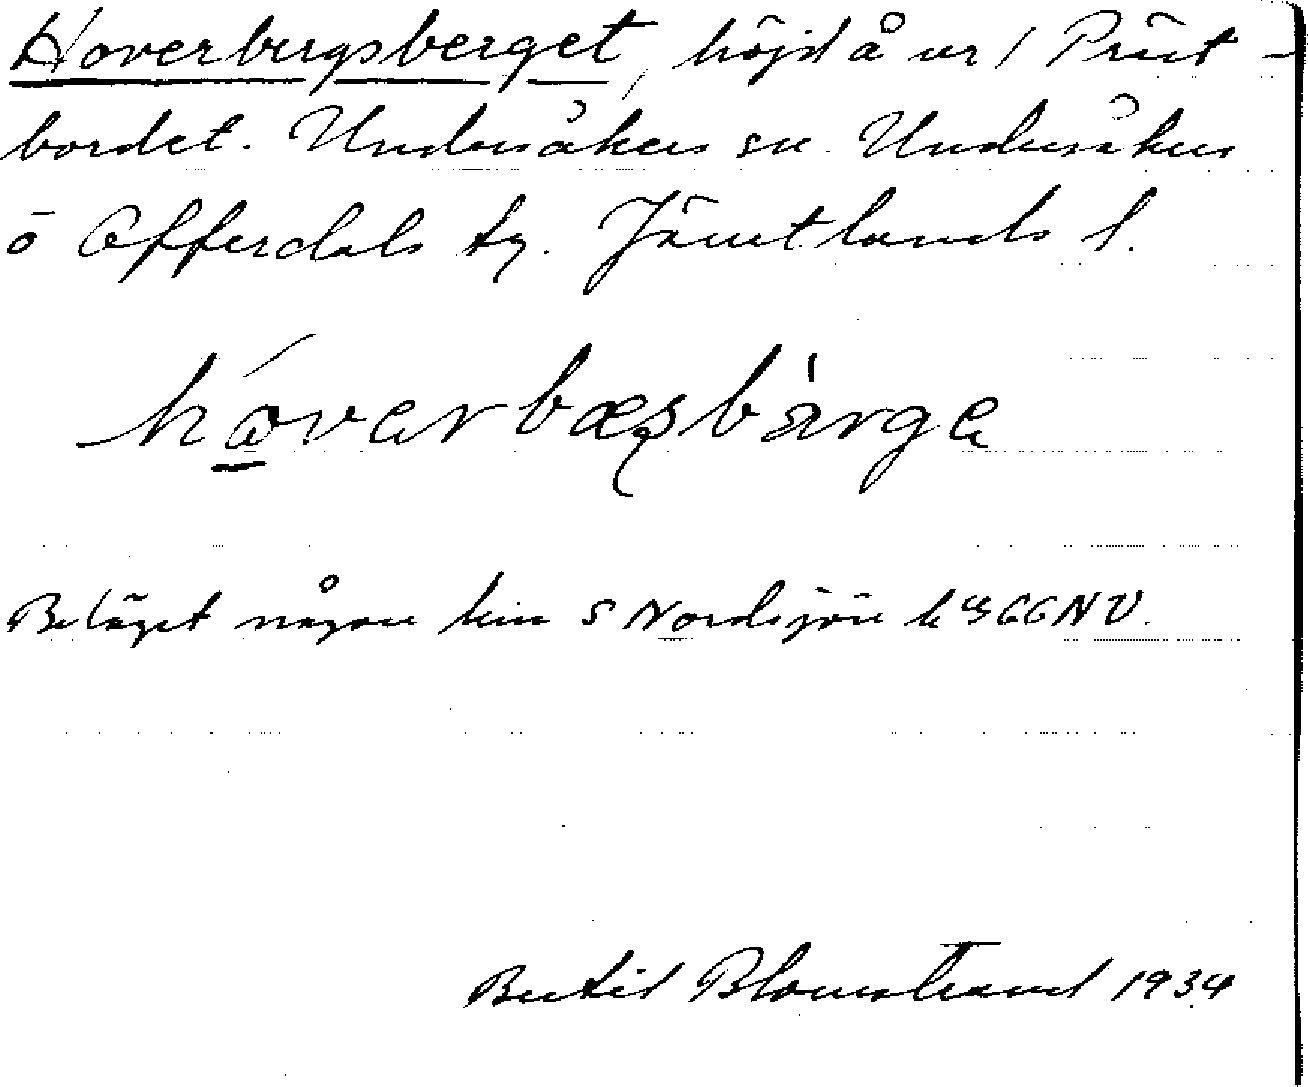 Hoverbergsberget, höjd å nr 1 Präst-
bordet. Undersåkers sn. Undersåkers
o Offerdals tg. Jämtlands l.
hóverbæsbärge
Beläget någon km S Nordsjön kbl 66 NV.
Bertil Blomstrand 1934